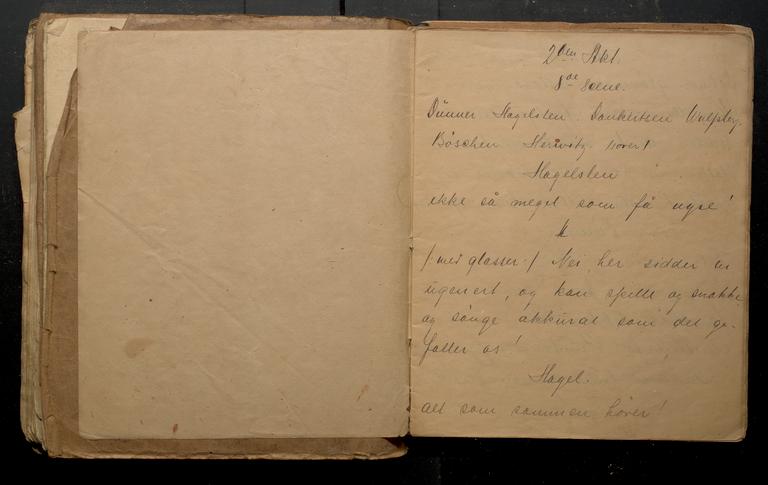 2den Akt.
8de Scene.
Dünner Hagelsten. Dankertsen Wulfsberg.
Böschen Herwitz
Hagelsten
ikke så meget som få nyse!
/: med glasser :/ Nei, her sidder en
ugenert, og kan spille og snakke
og sönge akkurat som det ge-
faller os!
Hagel.
alt som sammen hører!